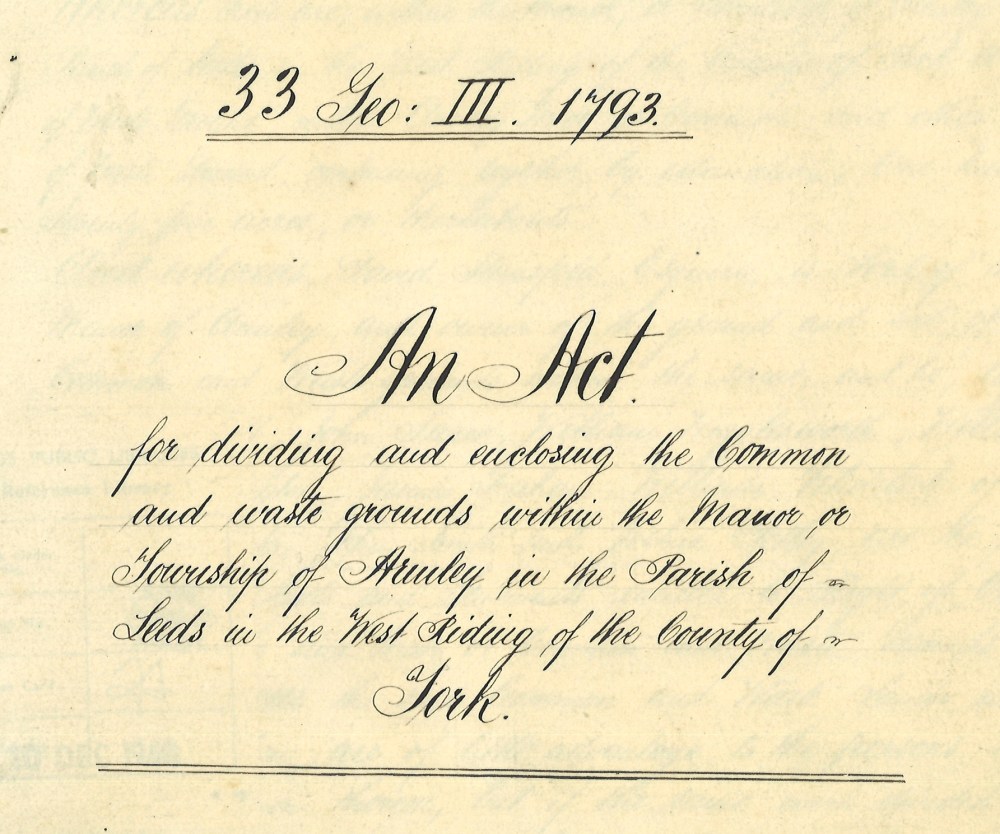 33 Geo: III. 1793.
An Act.
for dividing and enclosing the Common
and waste grounds within the Manor or
Township of Armley in the Parish of
Leeds in the West Riding of the County of
York.